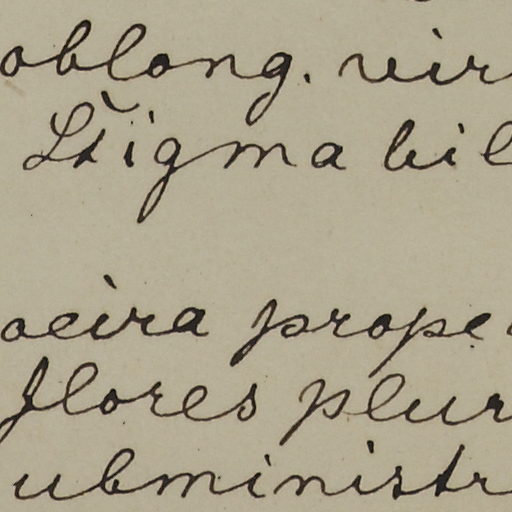 oblong. vir
Stigma bil
oeira prope
flores plur
ubministr